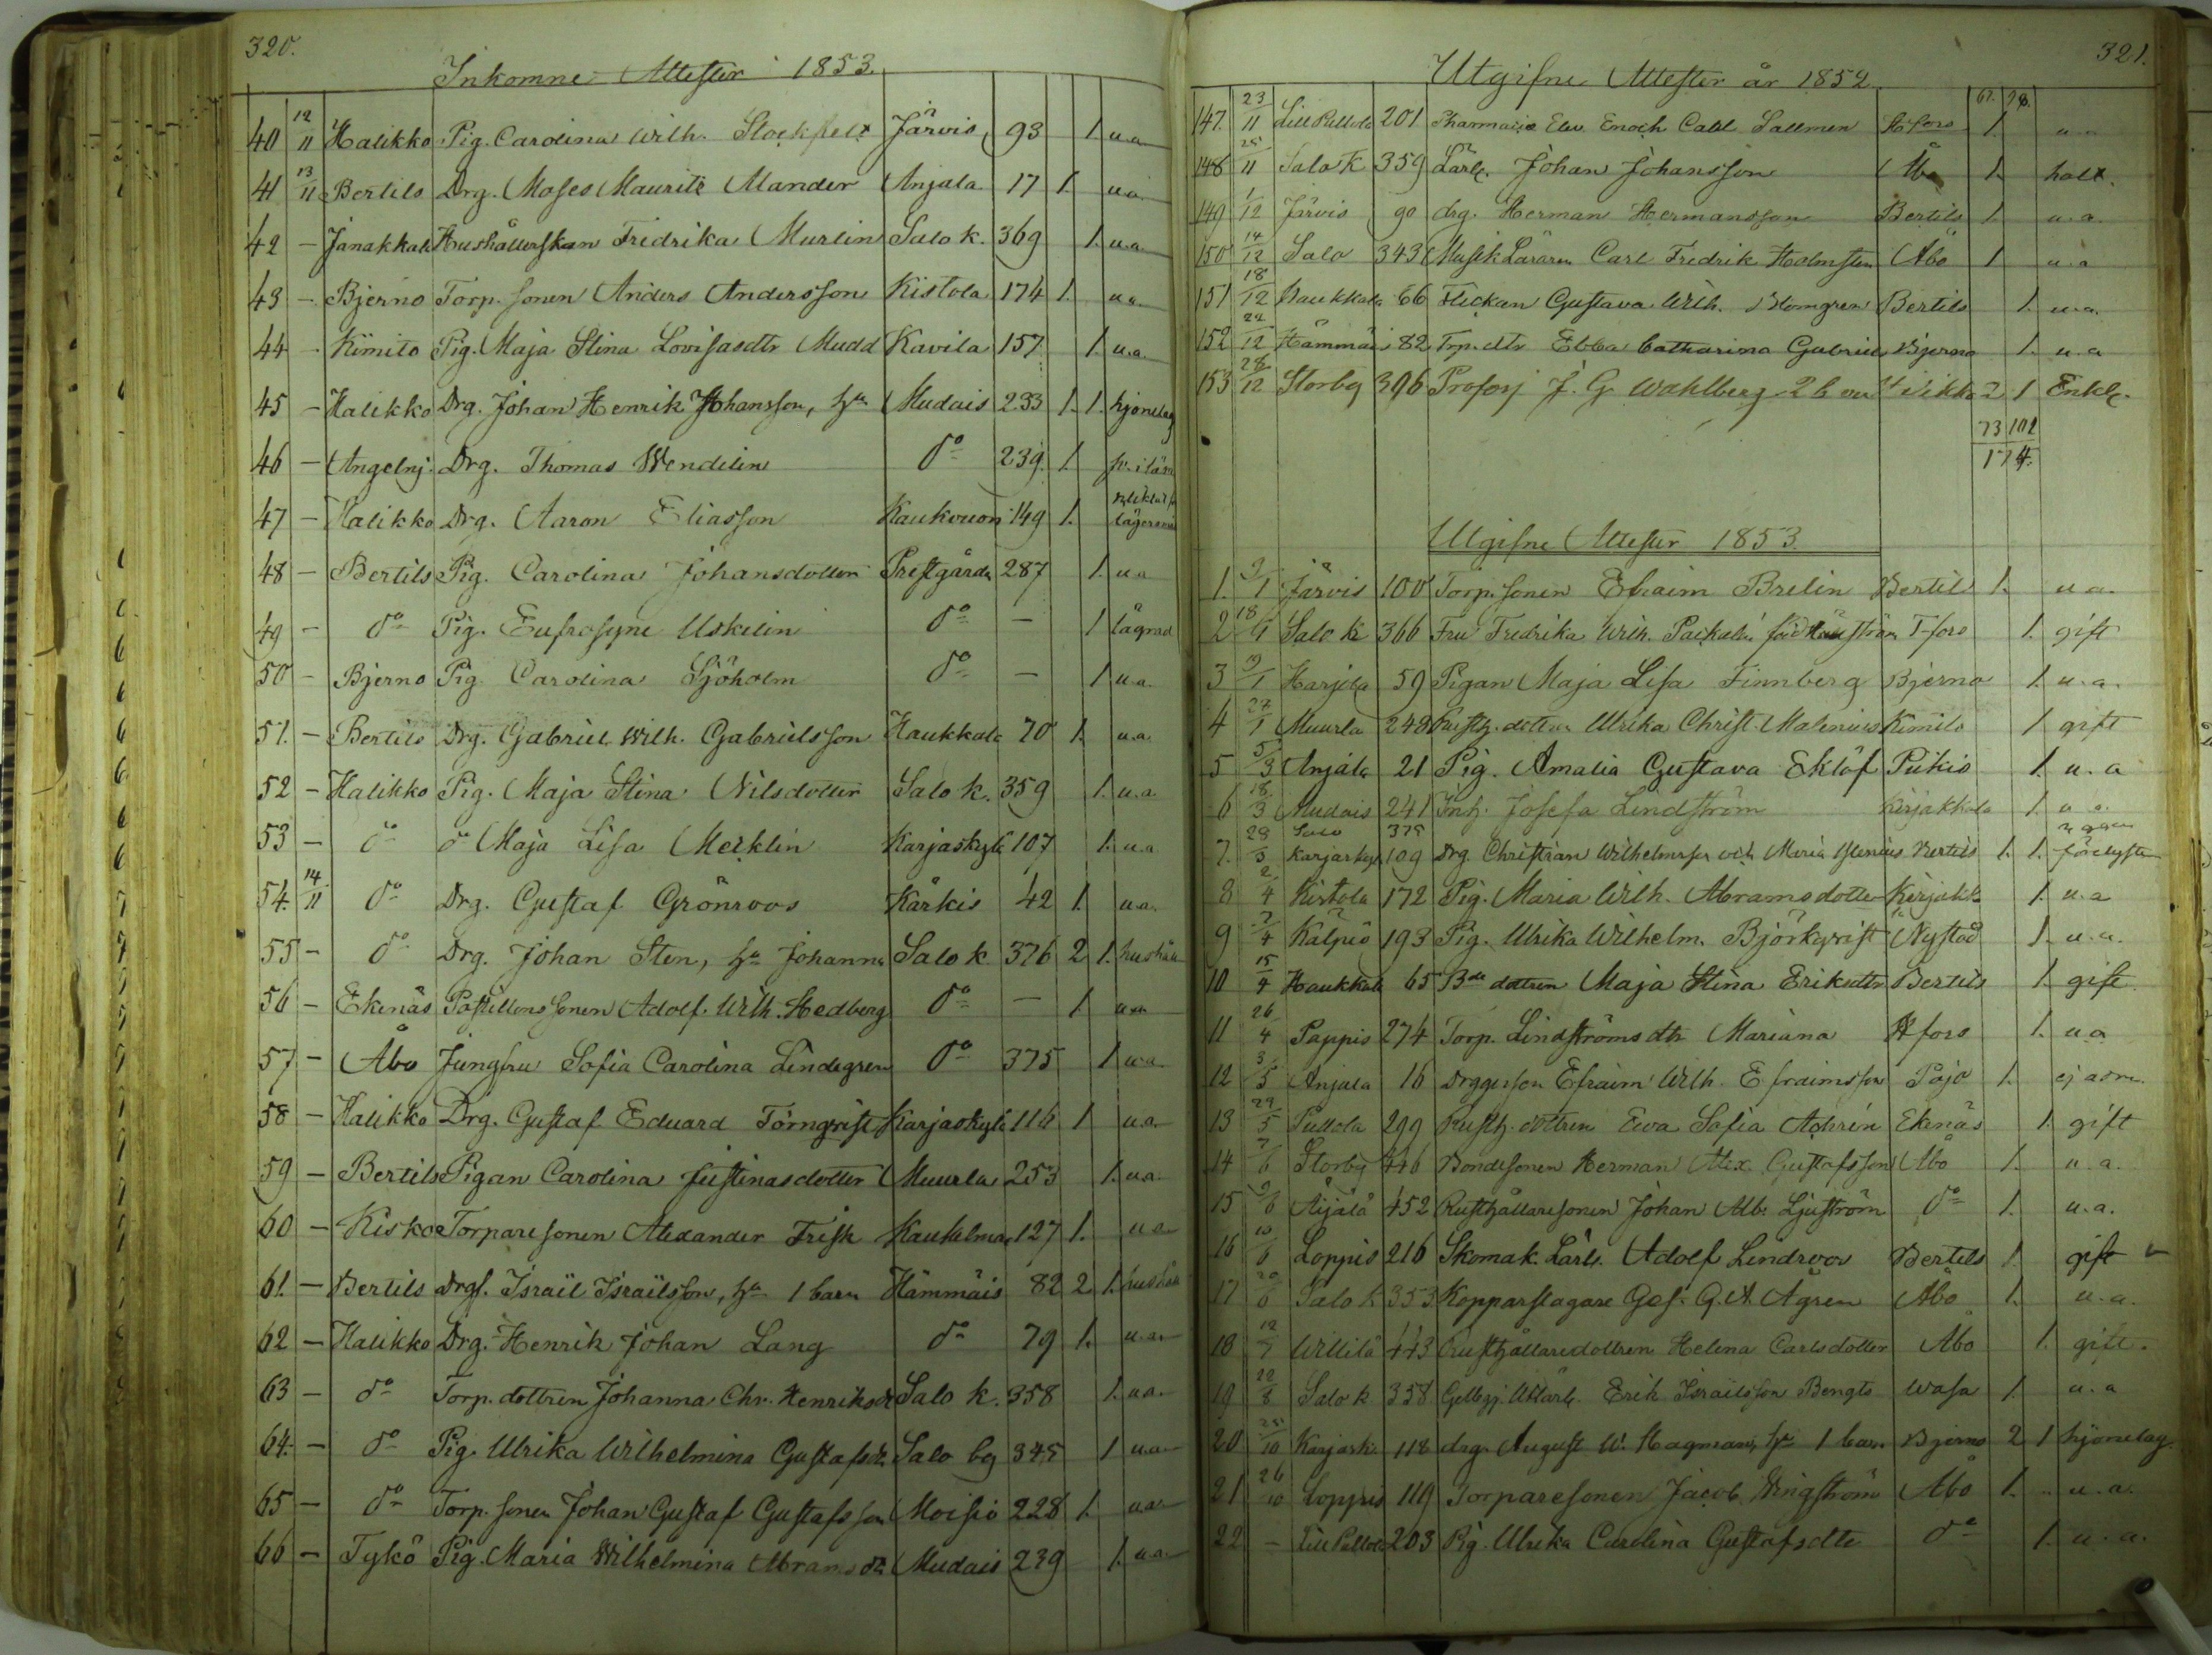 320.
Inkomne Attester 1853.
40 12/11 Halikko Pig. Carolina Wilh. Stockfelt Järvis 93 1 u.a.
41 13/11 Bertils Drg. Moses Maurits Mander Anjala 17 1. u.a.
42 - Janakkala Hushållerskan Fredrika Murlin Salo k. 369 1. u.a.
43 - Bjerno Torp. sonen Anders Andersson Kistola 174 1. u.a.
44 - Kimito Pig. Maja Stina Lovisasdtr Mudd Kavila 157 1. u.a.
45 - Halikko Drg. Johan Henrik Johansson, hu Mudais 233 1. 1. hjonelag
46 - Angelnj. Drg. Thomas Wendelin do 239 1.
47 - Halikko Drg. Aaron Eliasson 149 1.
48 - Bertils Pig. Carolina Johansdotter Prestgården 287 1. u.a
49 - do Pig. Eufrosyne Uskelin do - 1 lägrad
50 - Bjerno Pig. Carolina Sjöholm do - 1 u.a.
51. - Bertils Drg. Gabriel Wilh. Gabrielsson Haukkala 70 1. u.a.
52 - Halikko Pig. Maja Stina Nilsdotter Salo k. 359 1. u.a.
53 - do do Maja Lisa Mecklin Karjaskylä 107 1. u.a
54. 14/11 do Drg. Gustaf Grönroos Kärkis 42 1. u.a.
55 - do Drg. Johan Sten, hu Johanna Salo k. 376 2 1.
56 - Ekenäs Postillons sonen Adolf. Wilh. Hedberg do - 1 u.a.
57 - Åbo Jungfru Sofia Carolina Lindegren do 375 1 u.a.
58 - Halikko Drg. Gustaf Eduard Törnqvist Karjaskylä 116 1 u.a.
59 - Bertils Pigan Carolina Justinasdotter Muurla 253 1. u.a.
60 - Kisko Torparesonen Alexander Frisk 127 1. u.a.
61. - Bertils Drg. Israel Israelsson, hu 1 barn Hämmäis 82 2 1.
62 - Halikko Drg. Henrik Johan Lang do 79 1. u.a.
63 - do Torp. dottren Johanna Chr. Henriksdr Salo k. 358 1. u.a.
64. - do Pig. Ulrika Wilhelmina Gustafsdr. Salo by 345 1 u.a.
65 - do Torp. sonen Johan Gustaf Gustafsson Moisio 228 1. u.a.
66 - Tykö Pig. Maria Wilhelmina Abramsdr Mudais 239 1. u.a.
321.
Utgifne Attester år 1852
147. 23/11 Lill Pullola 201 Pharmacie Elev. Enoch Sallmen H:fors 1. u.a
148 25/11 Salo k 359 Lärl. Johan Johansson Åbo 1. halt.
149 1/12 Järvis 90 drg. Herman Hermansson Bertils 1. u.a.
150 14/12 Salo 343 Musik Läraren Carl Fredrik Holmsten Åbo 1 u.a
151 18/12 Haukkala 66 Flickan Gustava Wilh. Blomgren Bertils 1. u.a.
152 22/12 Hämmäis 82 Trp. dtr Ebba Catharina Bjerno 1. u.a
153 28/12 Storby 396 J. G. Wahlberg 2 b 2 1 Enkl.
73 101
174.
Utgifne Attester 1853.
1. 9/1 Järvis 100 Torp. sonen Efraim Brelin Bertils 1. u.a.
2 18/1 Salo k 366 Fru Fredrika Wilh. T-fors 1. gift
3 19/1 Harjola 59 Pigan Maja Lisa Finnberg Bjerno 1. u.a.
4 27/1 Muurla 248 Rusth. dottren Ulrika Christ. Malenius Kimito 1 gift
5 5/3 Anjala 21 Pig. Amalia Gustava Eklöf Pikis 1. u.a
6 18/3 Mudais 241 Josefa Lindström Kirjakkala 1. u.a.
Salo 375
7. 29/3 Karjaskyl 109 Drg. Christian Wilhelmsson och Maria Bertils 1. 1.
8 2/4 Kistola 172 Pig. Maria Wilh. Abramsdotter Kirjakk 1. u.a
9 7/4 Kälpis 193 Pig. Ulrika Wilhelm. Björkqvist Nystad 1. u.a.
10 15/4 Haukkala 65 Bde dottren Maja Stina Eriksdtr Bertils 1. gift
11 26/4 Pappis 274 Torp. Lindströms dtr Mariana H:fors 1. u.a
12 3/5 Anjala 16 Efraim Wilh. Efraimsson Pojo 1. ej adm.
13 29/5 Pullola 299 Rusth. dottren Ewa Sofia Achrén Ekenäs 1. gift
14 7/6 Storby 446 Bondesonen Herman Alex. Gustafsson Åbo 1. u.a.
15 9/6 Äijälä 452 Rusthållaresonen Johan Alb. Ljuström do 1. u.a.
16 10/6 Loppis 216 Skomak. Lärl. Adolf Lindroos Bertils 1. gift
17 20/6 Salo k 353 Kopparslagare Ges. G. A. Ågren Åbo 1. u.a.
18 12/7 Willilä 443 Rusthållaredottren Helena Carlsdotter Åbo 1. gift.
19 22/8 Salo k 358 Erik Israelsson Bengts Wasa 1. u.a
20 25/10 Karjask. 118 drg. August W. Hagman, hu 1 barn Bjerno 2 1 hjonelag
21 26/10 Loppis 119 Torparesonen Jacob Wingström Åbo 1. u.a.
22 - Lill Pullola 203 Pig. Ulrika Carolina Gustafsdtr do 1. u.a.